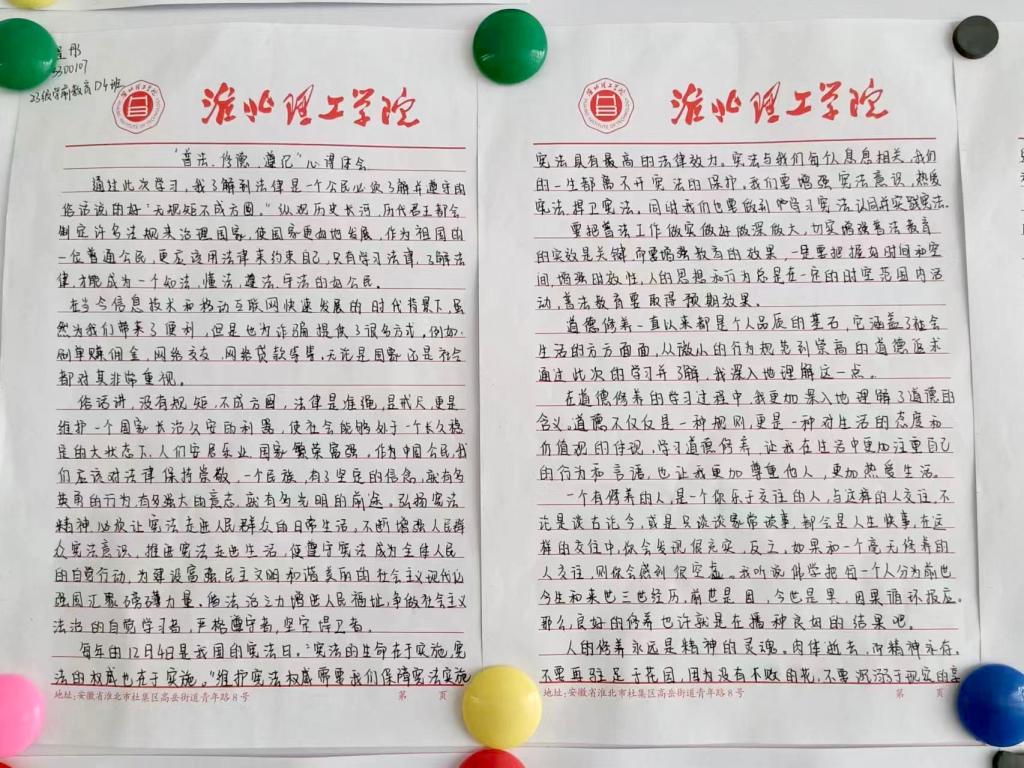 彤
300107
23级学前教育04班
淮北理工学院
"普法、修德、遵纪"心得体会
通过此次学习，我了解到法律是一个公民必须了解并遵守的
俗话说的好"无规矩不成方圆。"纵观历史长河，历代君王都会
制定许多法规来治理国家，使国家更由地发展，作为祖国的
一位普通公民，更应该用法律来约束自己，只有学习法律，了解法
律，才能成为一个知法，懂法，遵法，守法的好公民。
在当今信息技术和移动互联网快速发展的时代背景下，虽
然为我们带来了便利，但是也为诈骗提供了很多方式，例如：
刷单赚佣金，网络交友，网络贷款等等，无论是国家还是社会
都对其非常重视。
俗话讲，没有规矩，不成方圆，法律是准绳，是戒尺，更是
维护一个国家长治久安的利器，使社会能够处于一个长久稳
定的大状态下，人们安居乐业，国家繁荣富强，作为中国公民，我
们应该对法律保持崇敬，一个民族，有了坚定的信念，就有多
英勇的行为，有多强大的意志，就有多光明的前途。弘扬宪法
精神，必须让宪法走进人民群众的日常生活，不断增强人民群
众宪法意识，推进宪法走进生活，使遵守宪法成为全体人民
的自觉行动，为建设富强民主文明和谐美丽的社会主义现代化
强国汇聚磅礴力量。为法治之力增进人民福祉，争做社会主义
法治的自觉学习者，严格遵守者，坚定捍卫者。
每年的12月4日是我国的宪法日。"宪法的生命在于实施，宪
法的权威也在于实施。"维护宪法权威需要我们保障宪法实施
地址：安徽省淮北市杜集区高岳街道青年路8号 第 页
淮北理工学院
宪法具有最高的法律效力。宪法与我们每个人息息相关，我们
的一生都离不开宪法的保护。我们要增强宪法意识，热爱
宪法，捍卫宪法。同时我们也要做到学习宪法、认同并实践宪法。
要把普法工作做实做好做深做大，切实增强普法教育
的实效是关键，而要增强教育的效果，一定要把握好时间和空
间，增强时效性，人的思想和行为总是在一定的时空范围内活
动，普法教育要取得预期效果。
道德修养一直以来都是个人品质的基石，它涵盖了社会
生活的方方面面，从微小的行为规范到崇高的道德追求
通过此次的学习并了解，我深入地理解这一点。
在道德修养的学习过程中，我更加深入地理解了道德的
含义。道德不仅仅是一种规则，更是一种对生活的态度和
价值观的体现，学习道德修养，让我在生活中更加注重自己
的行为和言语，也让我更加尊重他人，更加热爱生活。
一个有修养的人，是一个你乐于交往的人，与这样的人交往，不
论是谈古论今，或是只谈谈家常谈事，都会是人生快事，在这
样的交往中，你会发现很充实，反之，如果和一个毫无修养的
人交往，则你会感到很空虚。我听说佛学把每一个人分为前世
今生和来世三世经历，前世是因，今世是果，因果循环报应。
那么，良好的修养也许就是在播种良好的结果吧。
人的修养永远是精神的灵魂。肉体逝去，而精神永存。
不要再驻足于花园，因为没有不败的花，不要沉溺于现实的高
地址：安徽省淮北市杜集区高岳街道青年路8号 第 页